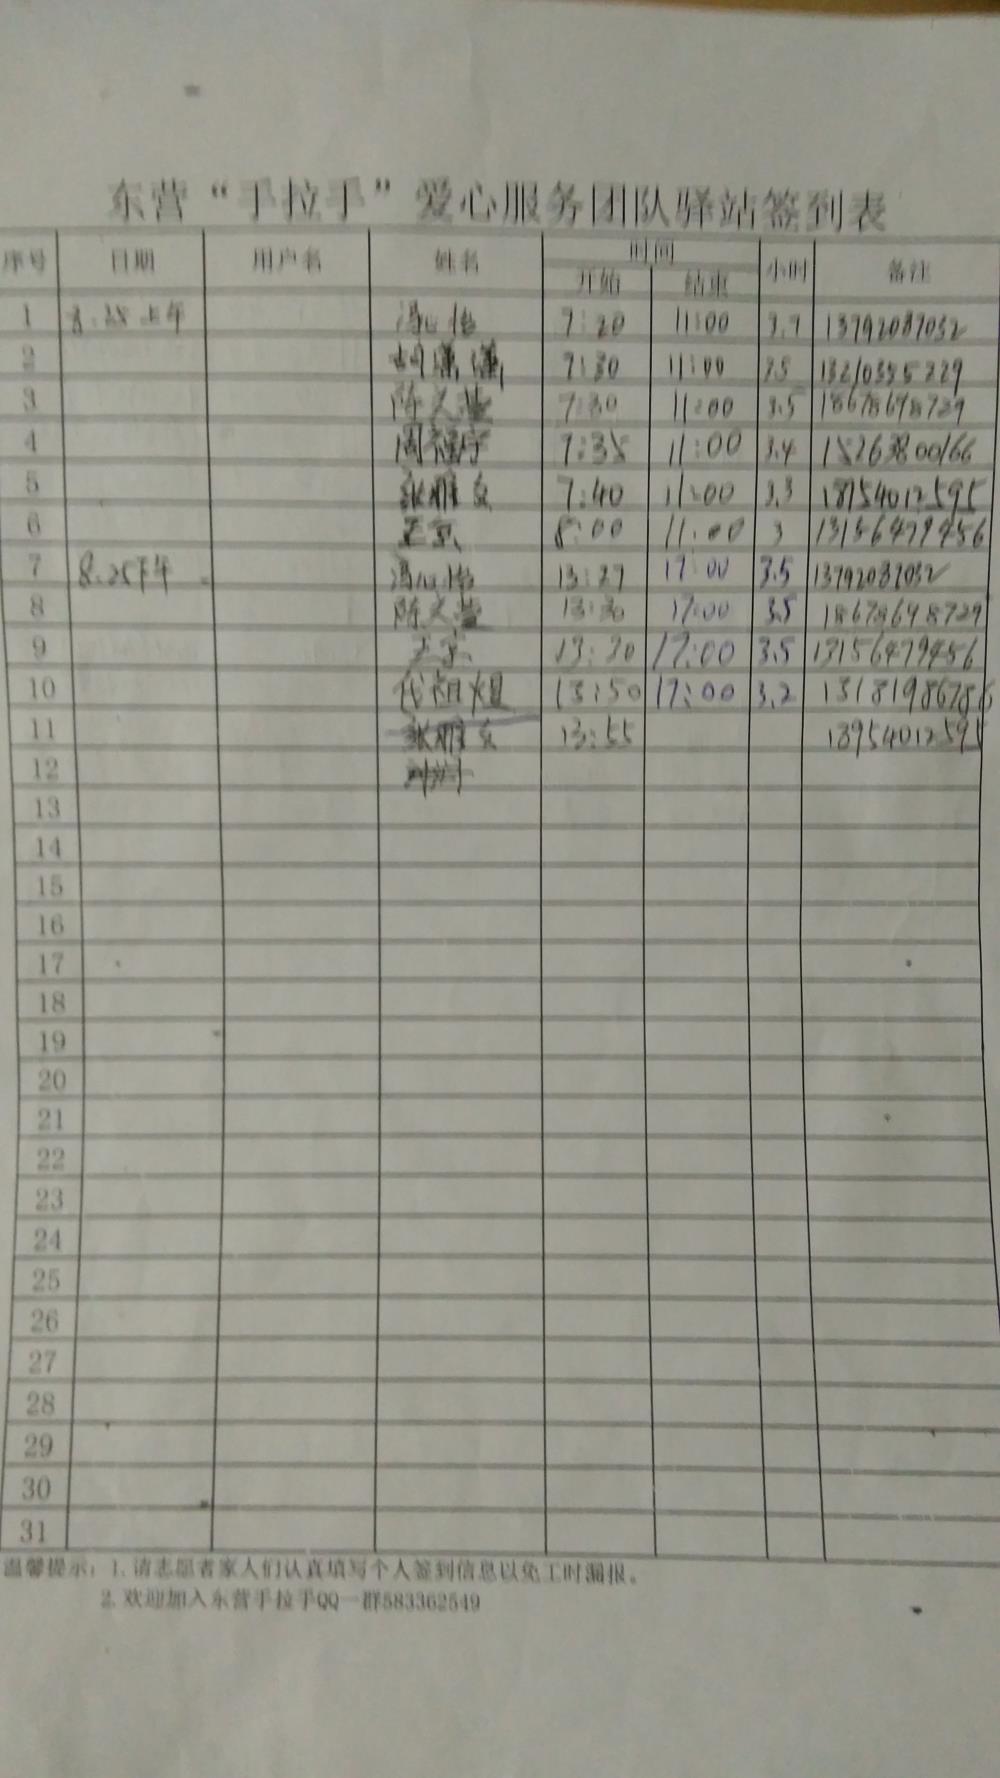 东营“手拉手”爱心服务团队驿站签到表
序号 日期 用户名 姓名 时间 小时 备注
开始 结束
1 8.25上午 冯心怡 7:20 11:00 3.7 13792087032
2 胡潇潇 7:30 11:00 3.5 13210355229
3 陈文莹 7:30 11:00 3.5 18678698729
4 周福宇 7:35 11:00 3.4 15263800166
5 张雅文 7:40 11:00 3.3 18954012595
6 王京 8:00 11:00 3 13156479456
7 8.25下午 冯心怡 13:27 17:00 3.5 13792087032
8 陈文莹 13:30 17:00 3.5 18678698729
9 王京 13:30 17:00 3.5 13156479456
10 代祖焜 13:50 17:00 3.2 13181986786
11 张雅文 13:55 18954012595
12
13
14
15
16
17
18
19
20
21
22
23
24
25
26
27
28
29
30
31
温馨提示：1.请志愿者家人们认真填写个人签到信息以免工时漏报。
2.欢迎加入东营手拉手QQ一群583362549